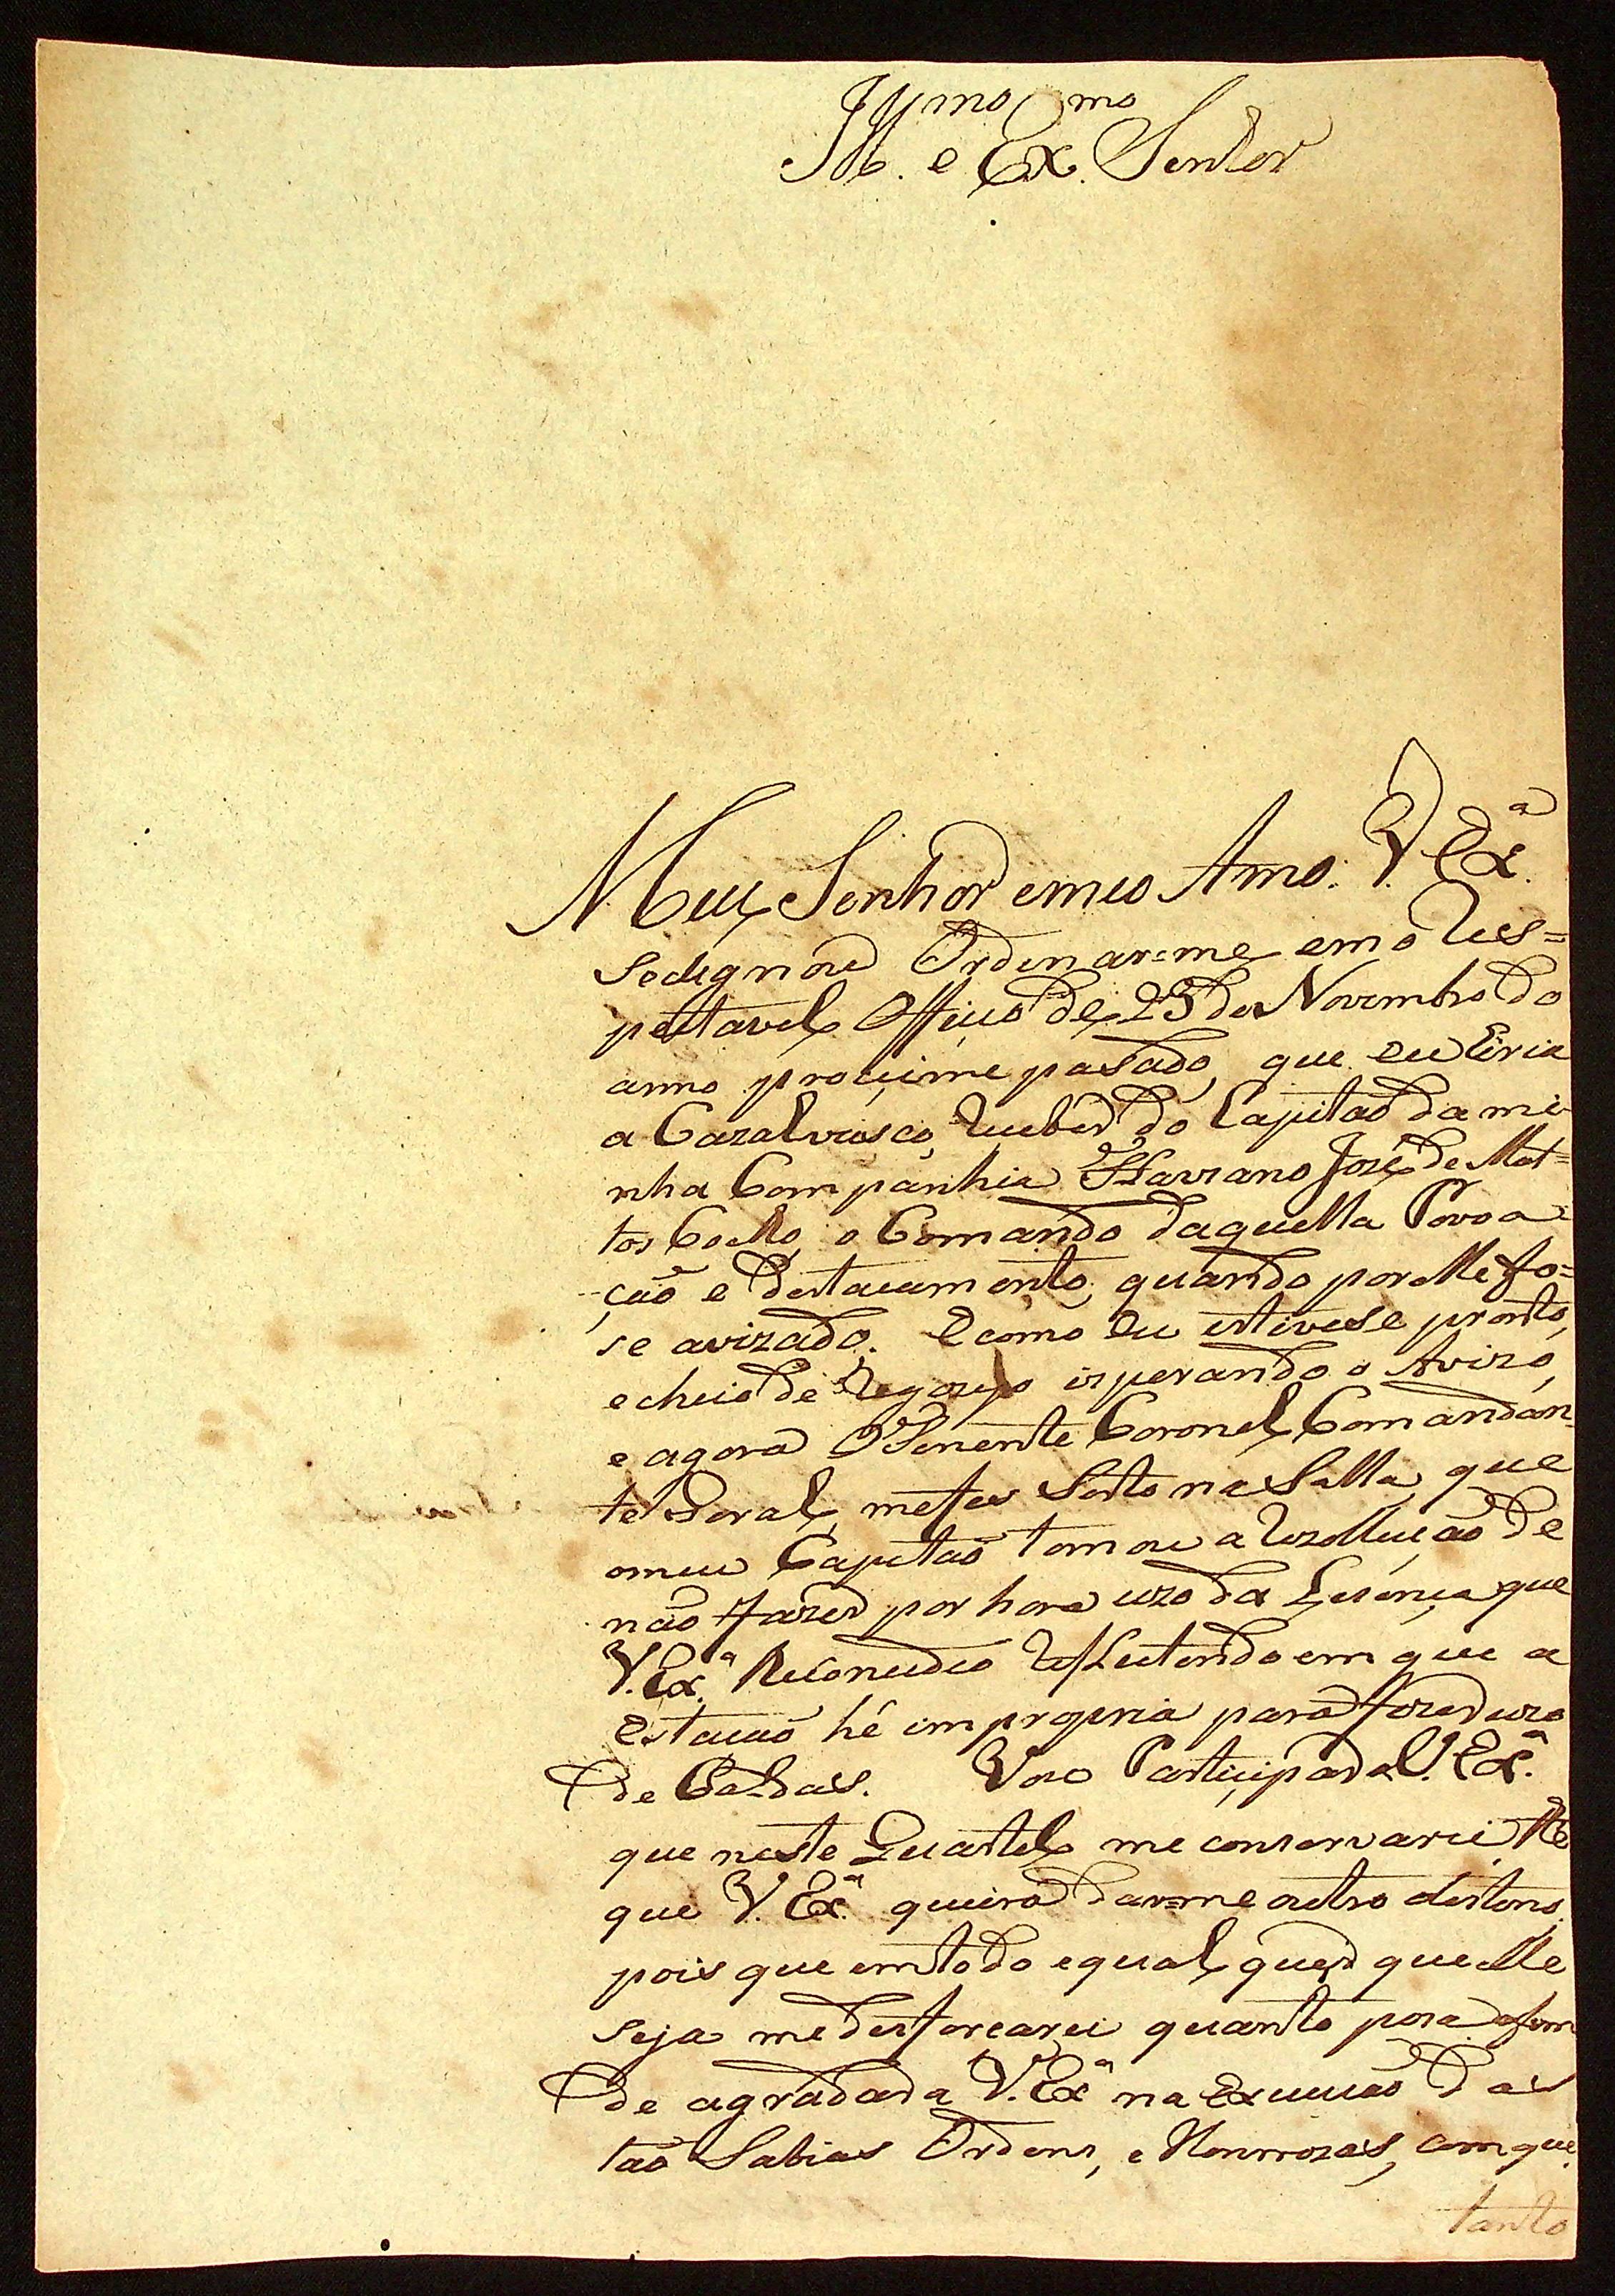 Ill.mo e Ex.mo Senhor
Meu Senhor e meo Amo. V. Ex.a
se dignou Ordenar=me em o Res=
peitavel Officio de 23 de Novembro do
anno procimo pasado, que eu Eiria
a Cazalvasco, receber do Capitaõ da mi-
nha Companhia Hilariano José de Mat=
tos Coelho, o Comando daquella Povoa=
çaõ e destacamento, quando por elle fo=
se avizado. E como eu estivese pronto,
e cheio de regozijo esperando o Avizo,
e agora O Tenente Coronel Comandan-
te Geral, me fes Serto na Salla, que
o meu Capitaõ tomou a rezolluçaõ de
naõ fazer por hora uzo da Lisença que
V. Ex.a Reconcedeo reflectindo em que a
Estaçaõ hé impropria para fazer uzo
de Caldas. Vou Participar a V. Ex.a
que neste Quartel me conservarei, Ate
que V. Ex.a queira dar=me outro destino,
pois que em todo e qual quer que elle
seja me desforcarei quanto posa afim
de agradar a V. Ex.a na Execuçaõ das
taõ Sabias Ordens, e Honrrozas, com que
tanto